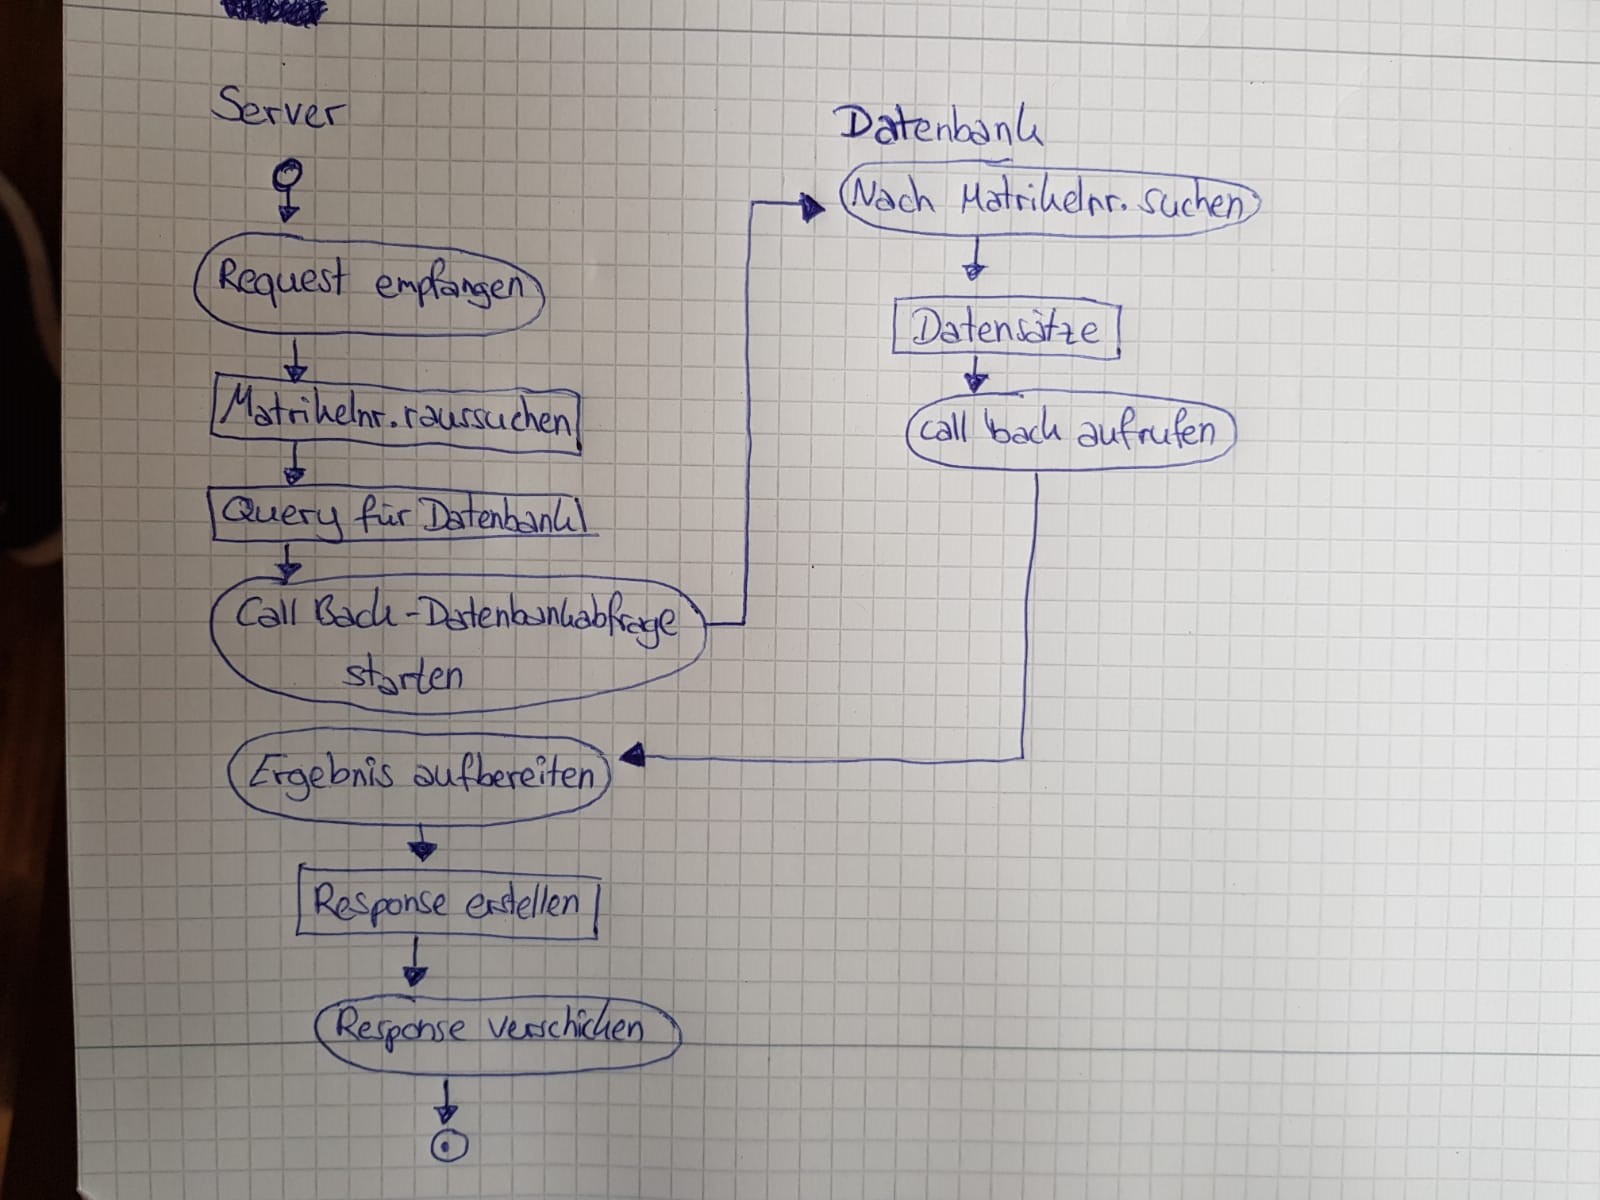 Server
Request empfangen
Matrikelnr. raussuchen
Query für Datenbank
Call Back - Datenbankabfrage
starten
Ergebnis aufbereiten
Response erstellen
Response verschicken
Datenbank
Nach Matrikelnr. suchen
Datensätze
call back aufrufen